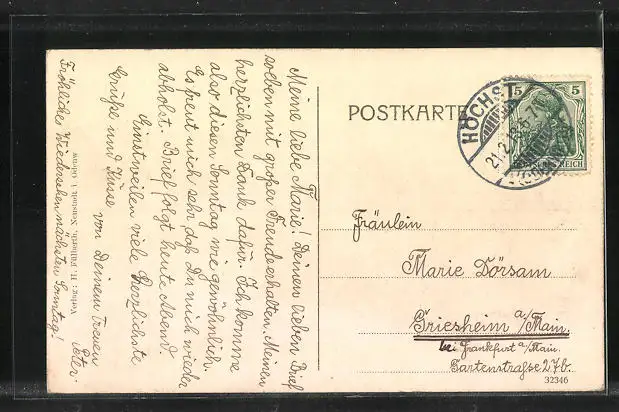 Meine liebe Marie! Deinen lieben Brief
soeben mit großer Freude erhalten. Meinen
herzlichsten Dank dafür. Ich komme
also diesen Sonntag wie gewöhnlich.
Es freut mich sehr daß Du mich wieder
abholst. Brief folgt heute Abend.
Einstweilen viele herzlichste
Grüße und Küsse
von Deinem treuen
Peter.
Fröhliches Wiedersehen nächsten Sonntag!
Verlag: H. Neustadt i. Odenw.
POSTKARTE
HÖCHST
21.2.13.6-7
5 5
DEUTSCHES REICH
Fräulein
Marie Dörsam
Griesheim a/Main.
bei Frankfurt a/Main.
Gartenstrasse 27b.
32346